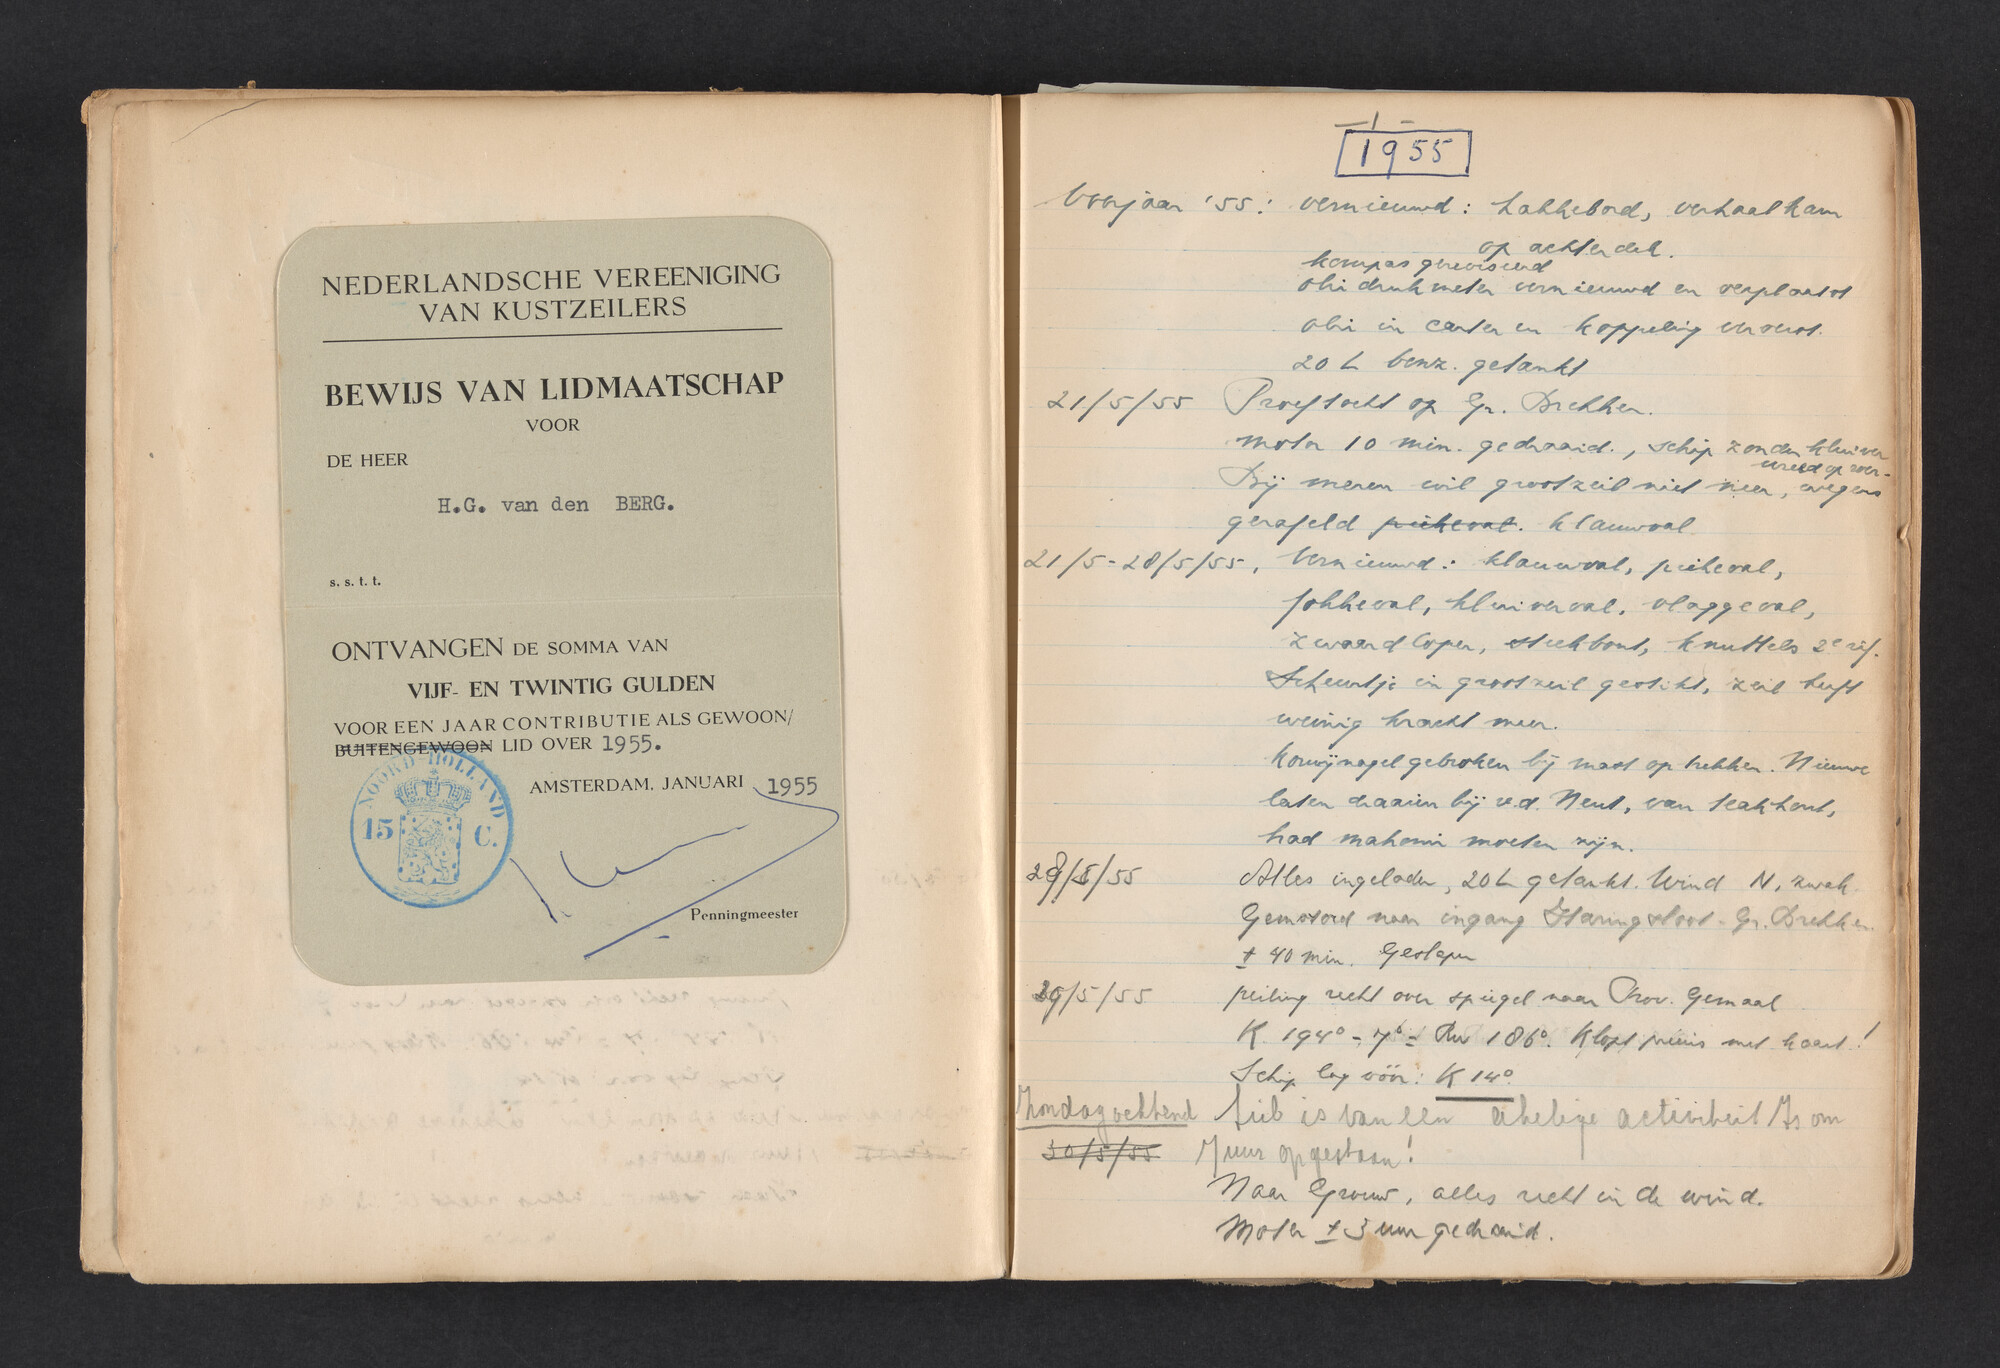 NEDERLANDSCHE VEREENIGING
VAN KUSTZEILERS
BEWIJS VAN LIDMAATSCHAP
VOOR
DE HEER
H.G. van den BERG.
s. s. t. t.
ONTVANGEN DE SOMMA VAN
VIJF- EN TWINTIG GULDEN
VOOR EEN JAAR CONTRIBUTIE ALS GEWOON/
BUITENGEWOON LID OVER 1955.
AMSTERDAM, JANUARI 1955
NOORD-HOLLAND
15 C.
Penningmeester
- 1 -
1955
Voorjaar '55: vernieuwd: hakkebord, verhaalkam
op achterdek.
kompas gereviseerd
olie drukmeter vernieuwd en verplaatst
olie in carter en koppeling ververst.
20 L benz. getankt
21/5/55 Proeftocht op Gr. Brekken.
motor 10 min. gedraaid., schip zonder kluiver
wreed op roer-
Bij meren wil grootzeil niet neer, wegens
gerafeld piekeval. klauwval
21/5-28/5/55, Vernieuwd: klauwval, piekeval,
fokkeval, kluiverval, vlaggeval,
zwaardloper, steekbout, knuttels 2e rif.
Scheurtje in grootzeil gestikt, zeil heeft
weinig kracht meer.
Korvijnagel gebroken bij mast optrekken. Nieuwe
laten draaien bij v.d. Neut, van teakhout,
had mahonie moeten zijn.
28/5/55 Alles ingeladen, 20 L getankt. Wind N, zwak.
Gemotord naar ingang Haringsloot - Gr. Brekken.
± 40 min. Geslapen
29/5/55 peiling recht over spiegel naar Prov. Gemaal
K. 194° - 7° = Rw 186°. Klopt precies met kaart!
Schip lag vóór: K 14°
Zondagochtend Sieb is van een akelige activiteit Is om
30/5/55 7 uur opgestaan!
Naar Grouw, alles recht in de wind.
Motor ± 3 uur gedraaid.